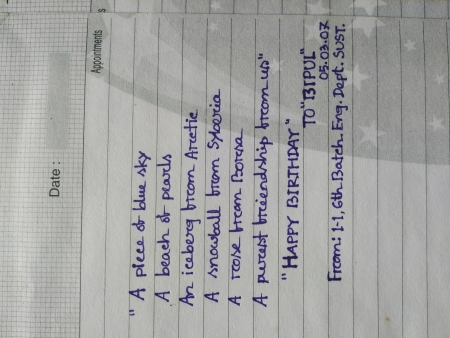 Date :
Appointments
" A piece of blue sky
A beach of pearls
An iceberg from Arctic
A snowball from Syberia
A rose from
A purest friendship from us"
" HAPPY BIRTHDAY"
TO "BIPUL"
05.03.07
From: 1-1, 6th Batch. Eng. Dept. SUST.